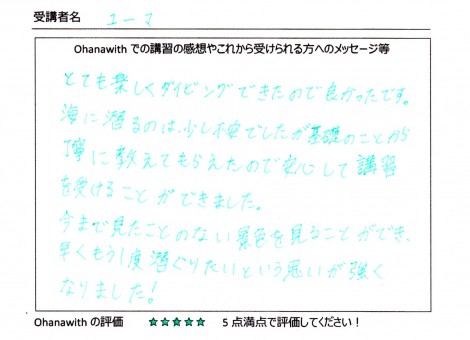 受講者名 ユーマ
Ohanawith での講習の感想やこれから受けられる方へのメッセージ等
とても楽しくダイビングできたので良かったです。
海に潜るのは、少し不安でしたが基礎のことから
丁寧に教えてもらえたので安心して講習
を受けることができました。
今まで見たことのない景色を見ることができ、
早くもう1度潜ぐりたいという思いが強く
なりました!
Ohanawith の評価 ★★★★★ 5 点満点で評価してください！